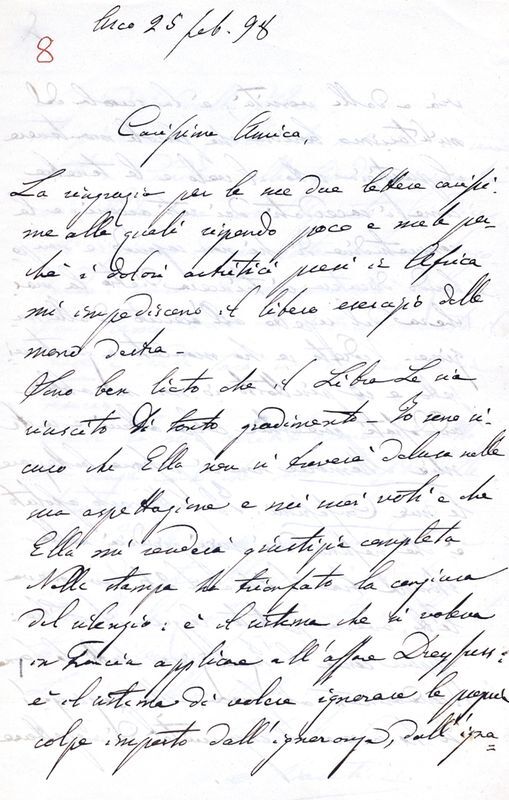 8
Arco 25 feb. 98
Carissima Amica,
La ringrazio per le sue due lettere carissi-
me alle quali rispondo poco e male per-
chè i dolori artritici presi in Africa
mi impediscono il libero esercizio della
mano destra -
Sono ben lieto che il Libro Le sia
riuscito di tanto gradimento - Io sono si-
curo che Ella non si troverà delusa nella
sua aspettazione e nei suoi voti e che
Ella mi renderà giustizia completa
Nella stampa ha trionfato la congiura
del silenzio: è il sistema che si voleva
in Francia applicare all'affare Dreyfuss:
è il sistema di volere ignorare le proprie
colpe imposto dall'ignoranza, dall'igna=